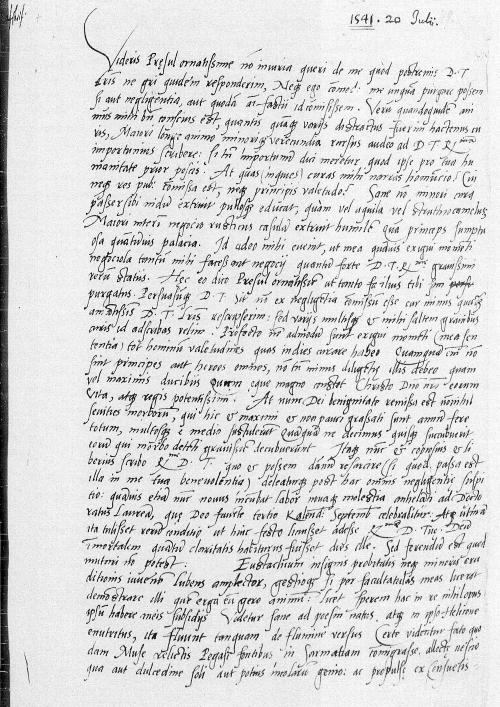 1541 · 20 Julij.
Videris Presul ornatissime non iniuria queri de me quod postremis D. T.
lris ne gri quidem responderim, Neque ego
si aut negligentia, aut quodam id comisissem. Verum quandoquidem ani
mus mihi bn conscius est, quantis quamque varijs distractus fuerim hactenus cu
ris, Maiori longe animo minorique verecundia rursus audeo ad D. T. R.
importunius scribere: si tn importunum dici meretur quod ipse pro tua hu
manitate prior poscis: At quas (inques) curas mihi narras homuncio? Cui
neque res pub: comissa est, neque principis valetudo? Sane no minori cura
passer sibi nidum extruit pullosque educat, quam vel aquila vel struthiocamelus
Maiori interim negocio rusticus casulam extruit humile quam princeps sumptu
osa quantumuis palacia. Id adeo mihi euenit, ut mea quamuis exigui momenti
negociola tantum mihi facessant negocij quantum forte D. T. R. grauissimi
reru status. Hec eo dico Presul ornatissime ut tanto facilius tibi sim
purgatus. Persuasumque D. T. sit no ex negligentia comissum esse cur minus
amantissimis D. T. lris rescripserim: sed varijs multisque et mihi saltem grauibus
curis id adscribas velim. Profecto no admodum sunt exigui momenti (mea sen
tentia) tot hominum valetudines quas indies curare habeo. Quamquam enim no
sint principes aut heroes omnes, no tn minus diligenter illis debeo quam
vel maximis ducibus Quum eque magno constet Christo Dno eorum
vita, atque regis potentissimi. At nunc Dei benignitate remissa est nonnihil
seuities morborum, qui hic et maximi et non pauci grassati sunt annum fere
totum, multosque e medio sustulerunt quamquam ne decimus quisque succubuerit
eorum qui morbo detenti grauissime decubuerant. Itaque nunc et copiosius et li
berius scribo R. D. T. quo et possem damnum resarcire (si quod passa est
illa in me tua beneuolentia) deleaturque post hac omnis negligentie suspi
tio: quamuis etiam nunc nouus incubat labor nouaque molestia anhelanti ad Docto
ratus Lauream, que Deo fauente tertio Kalend: Septemb celebrabitur. Atque utinam
ita tulisset rerum conditio ut huic festo licuisset adesse R. D. Tue: Deum
immortalem quantum claritatis habiturus fuisset dies ille. Sed ferendum est quod
mutari no potest. Eustachium insignis probitatis neque minoris eru
ditionis iuuenem lubens amplector, gestioque si per facultatulas meas liceret
demonstrare illi que erga eum gero animum: licet sperem hac in re nihilopus
ipsum habere meis subsidijs Videtur sane ad poesim natus, atque in ipso Helicone
enutritus, ita fluunt tanquam de flumine versus Certo videntur fato quo
dam Muse relictis Pegasi fontibus in Sarmatiam comigrasse, allecte nescio
qua aut dulcedine soli aut potius incolarum genio: ac propulse ex consuetis